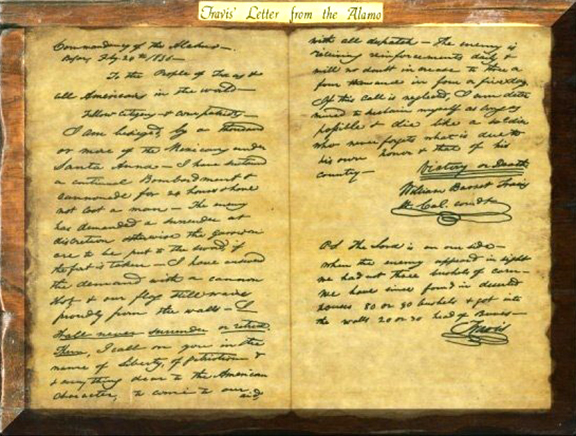 Travis' Letter from the Alamo
Commandancy of the Alamo—
Bejar, Fby 24th 1836—
To the People of Texas &
all Americans in the world—
Fellow citizens & compatriots—
I am besieged, by a thousand
or more of the Mexicans under
Santa Anna — I have sustained
a continual Bombardment &
cannonade for 24 hours & have
not lost a man — The enemy
has demanded a surrender at
discretion, otherwise, the garrison
are to be put to the sword, if
the fort is taken — I have answered
the demand with a cannon
shot, & our flag still waves
proudly from the walls — I
shall never surrender or retreat
Then, I call on you in the
name of Liberty, of patriotism &
& every thing dear to the American
character, to come to our aid,
with all dispatch — The enemy is
receiving reinforcements daily &
will no doubt increase to three or
four thousand in four or five days.
If this call is neglected, I am deter
mined to sustain myself as long as
possible & die like a soldier
who never forgets what is due to
his own honor & that of his
country —
Victory or Death
William Barret Travis
Lt. Col. comdt
P.S. The Lord is on our side —
When the enemy appeared in sight
we had not three bushels of corn —
We have since found in deserted
houses 80 or 90 bushels & got into
the walls 20 or 30 head of Beeves —
Travis